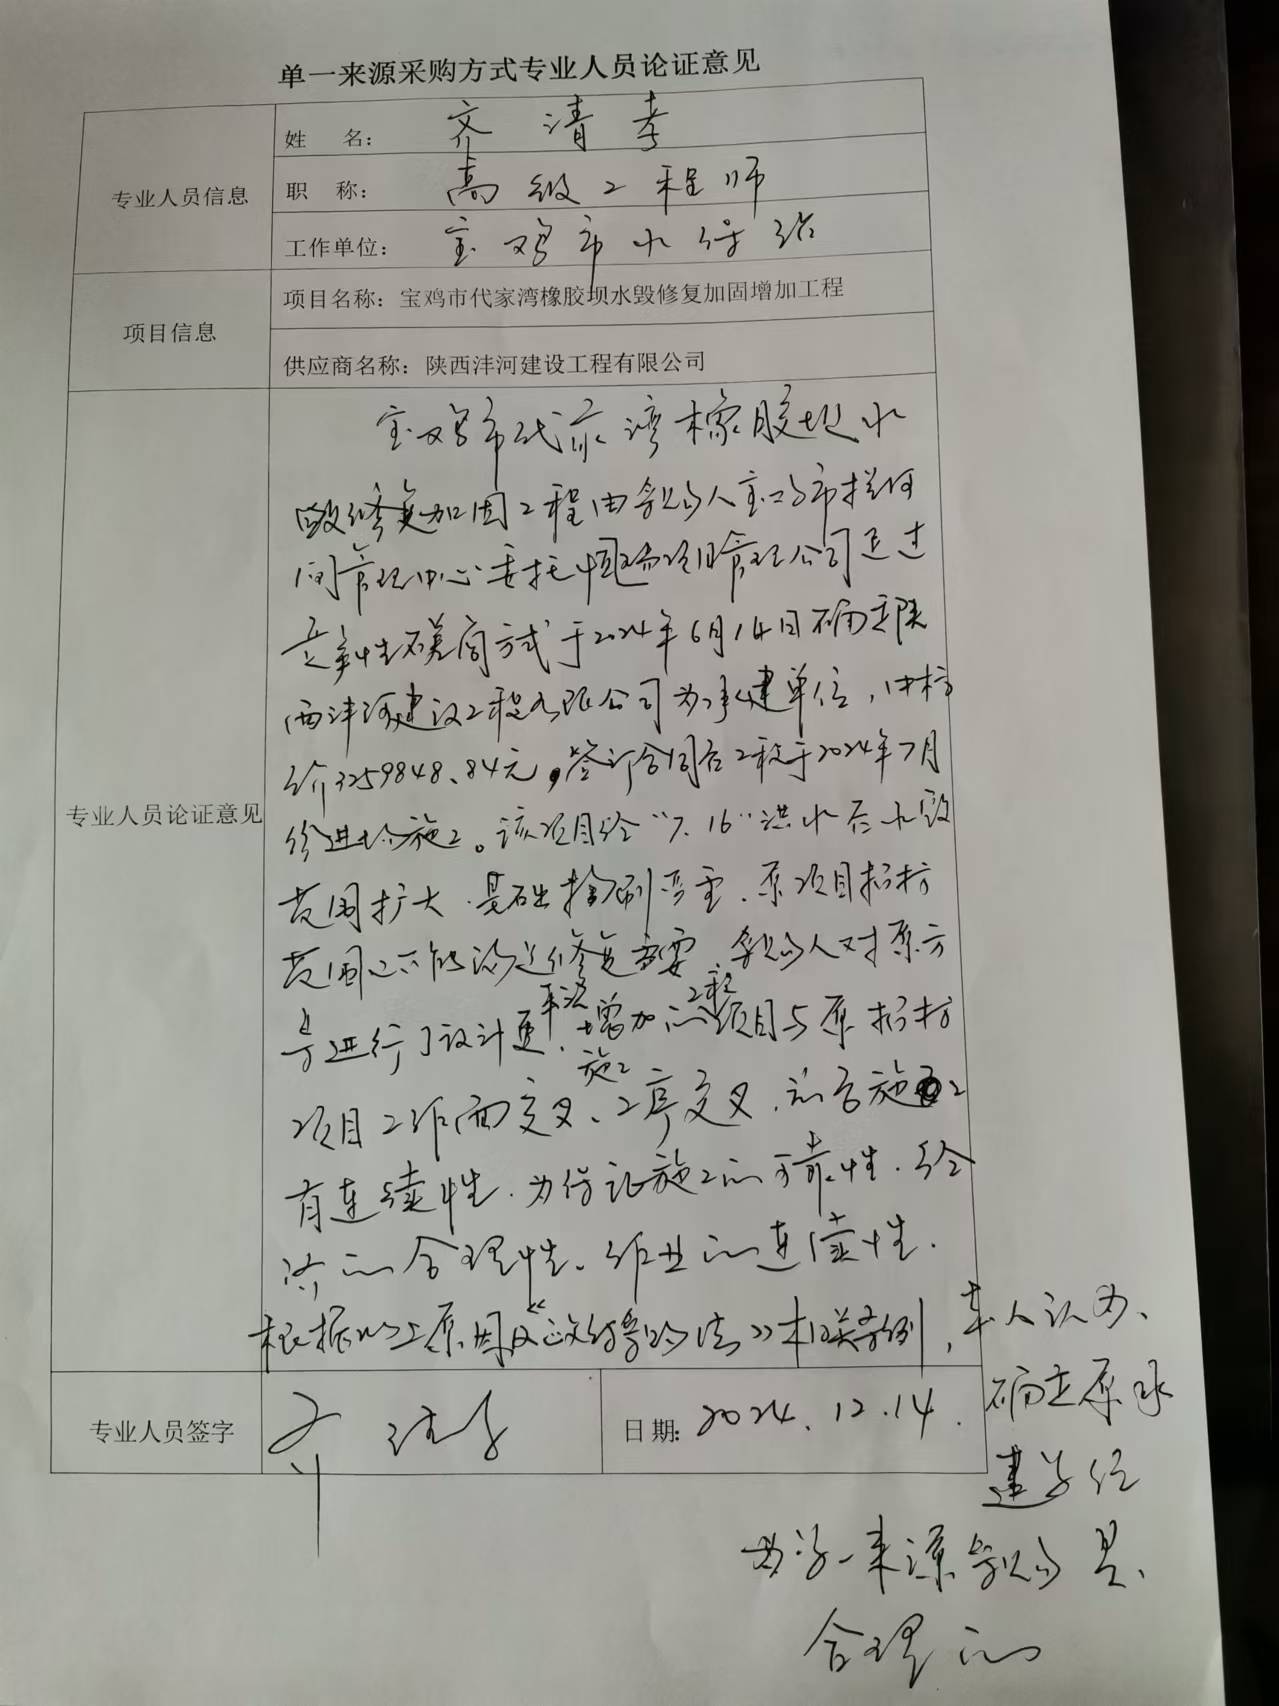 单一来源采购方式专业人员论证意见
专业人员信息
姓 名： 齐清孝
职 称： 高级工程师
工作单位： 宝鸡市水保站
项目信息
项目名称：宝鸡市代家湾橡胶坝水毁修复加固增加工程
供应商名称：陕西沣河建设工程有限公司
专业人员论证意见
宝鸡市代家湾橡胶坝水
毁修复加固工程由采购人宝鸡市拦河
闸管理中心委托中国项目管理公司通过
竞争性磋商方式于2024年6月14日确定陕
西沣河建设工程有限公司为承建单位，中标
价3259848.84元，签订合同后工程于2024年7月
份进场施工。该项目经“7.16”洪水后水毁
范围扩大，基础掏刷严重，原项目招标
范围已不能满足修复需要，采购人对原方
案进行了设计变更，增加的工程项目与原招标
项目工作面交叉、施工工序交叉，前后施工
有连续性，为保证施工的可靠性，经
济的合理性、作业的连续性，
根据以上原因及《政府采购法》相关条例，本人认为、
确定原承
建单位
为单一来源采购是
合理的
专业人员签字
齐清孝
日期： 2024.12.14.